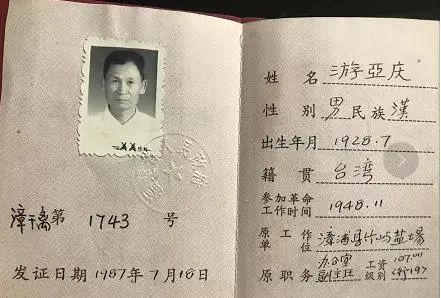 漳干离第 1743 号
发证日期 1987年7月18日
姓名 游亞庆
性别 男 民族 漢
出生年月 1928.7
籍贯 台湾
参加革命工作时间 1948.11
原工作单位 漳浦县竹屿盐場
原职务 办公室副主任 工资级别 107.00